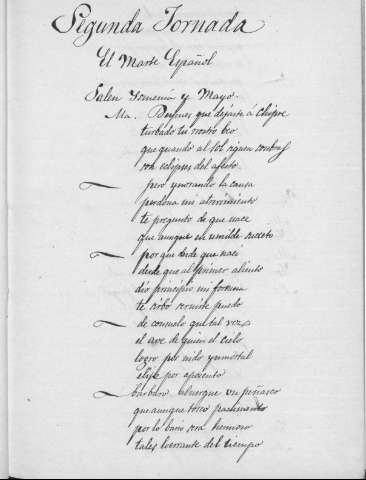 Segunda Jornada
El Marte Español
Salen Ismenia y Mayo.
Ma. Despues que dejaste á Chipre
turbado tu rostro beo
que quando al sol siguen sombras
son eclipses del afecto
pero ygnorando la causa
perdona mi atrevimiento
te pregunto de que nace
que aunque en umilde sugeto
por que desde que naci
desde que al primer aliento
dio principio mi fortuna
te sirbo servirte puedo
de consuelo que tal vez
el ave de quien el cielo
logro por nido ynmortal
elije por aposento
barbaro alvergue un peñasco
que aunque tosco
por lo bario sera hermoso
tales del tiempo